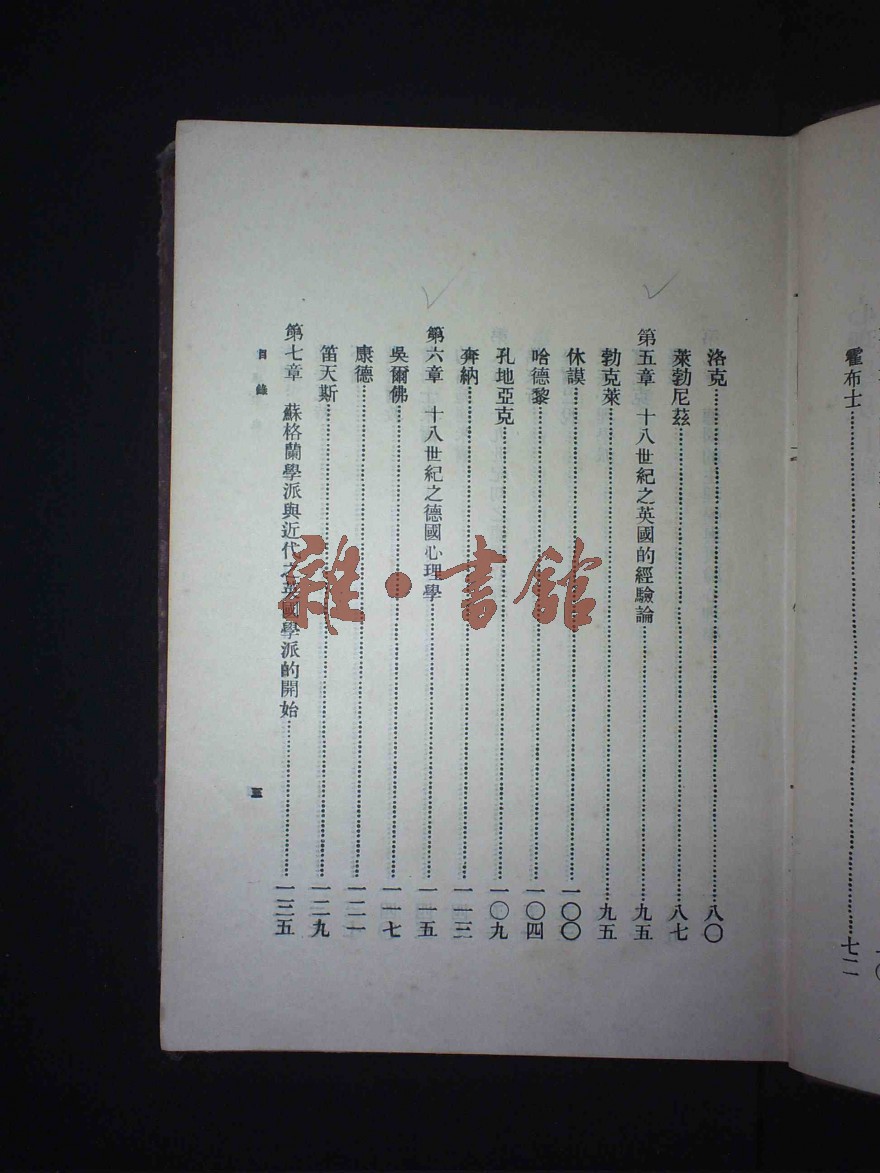 霍布士……七二
洛克……八〇
萊勃尼茲……八七
第五章 十八世紀之英國的經驗論……九五
勃克萊……九五
休謨……一〇〇
哈德黎……一〇四
孔地亞克……一〇九
奔納……一一三
第六章 十八世紀之德國心理學……一一五
吳爾佛……一一七
康德……一二一
笛天斯……一二九
第七章 蘇格蘭學派與近代之英國學派的開始……一三五
目錄
三
雜·書館